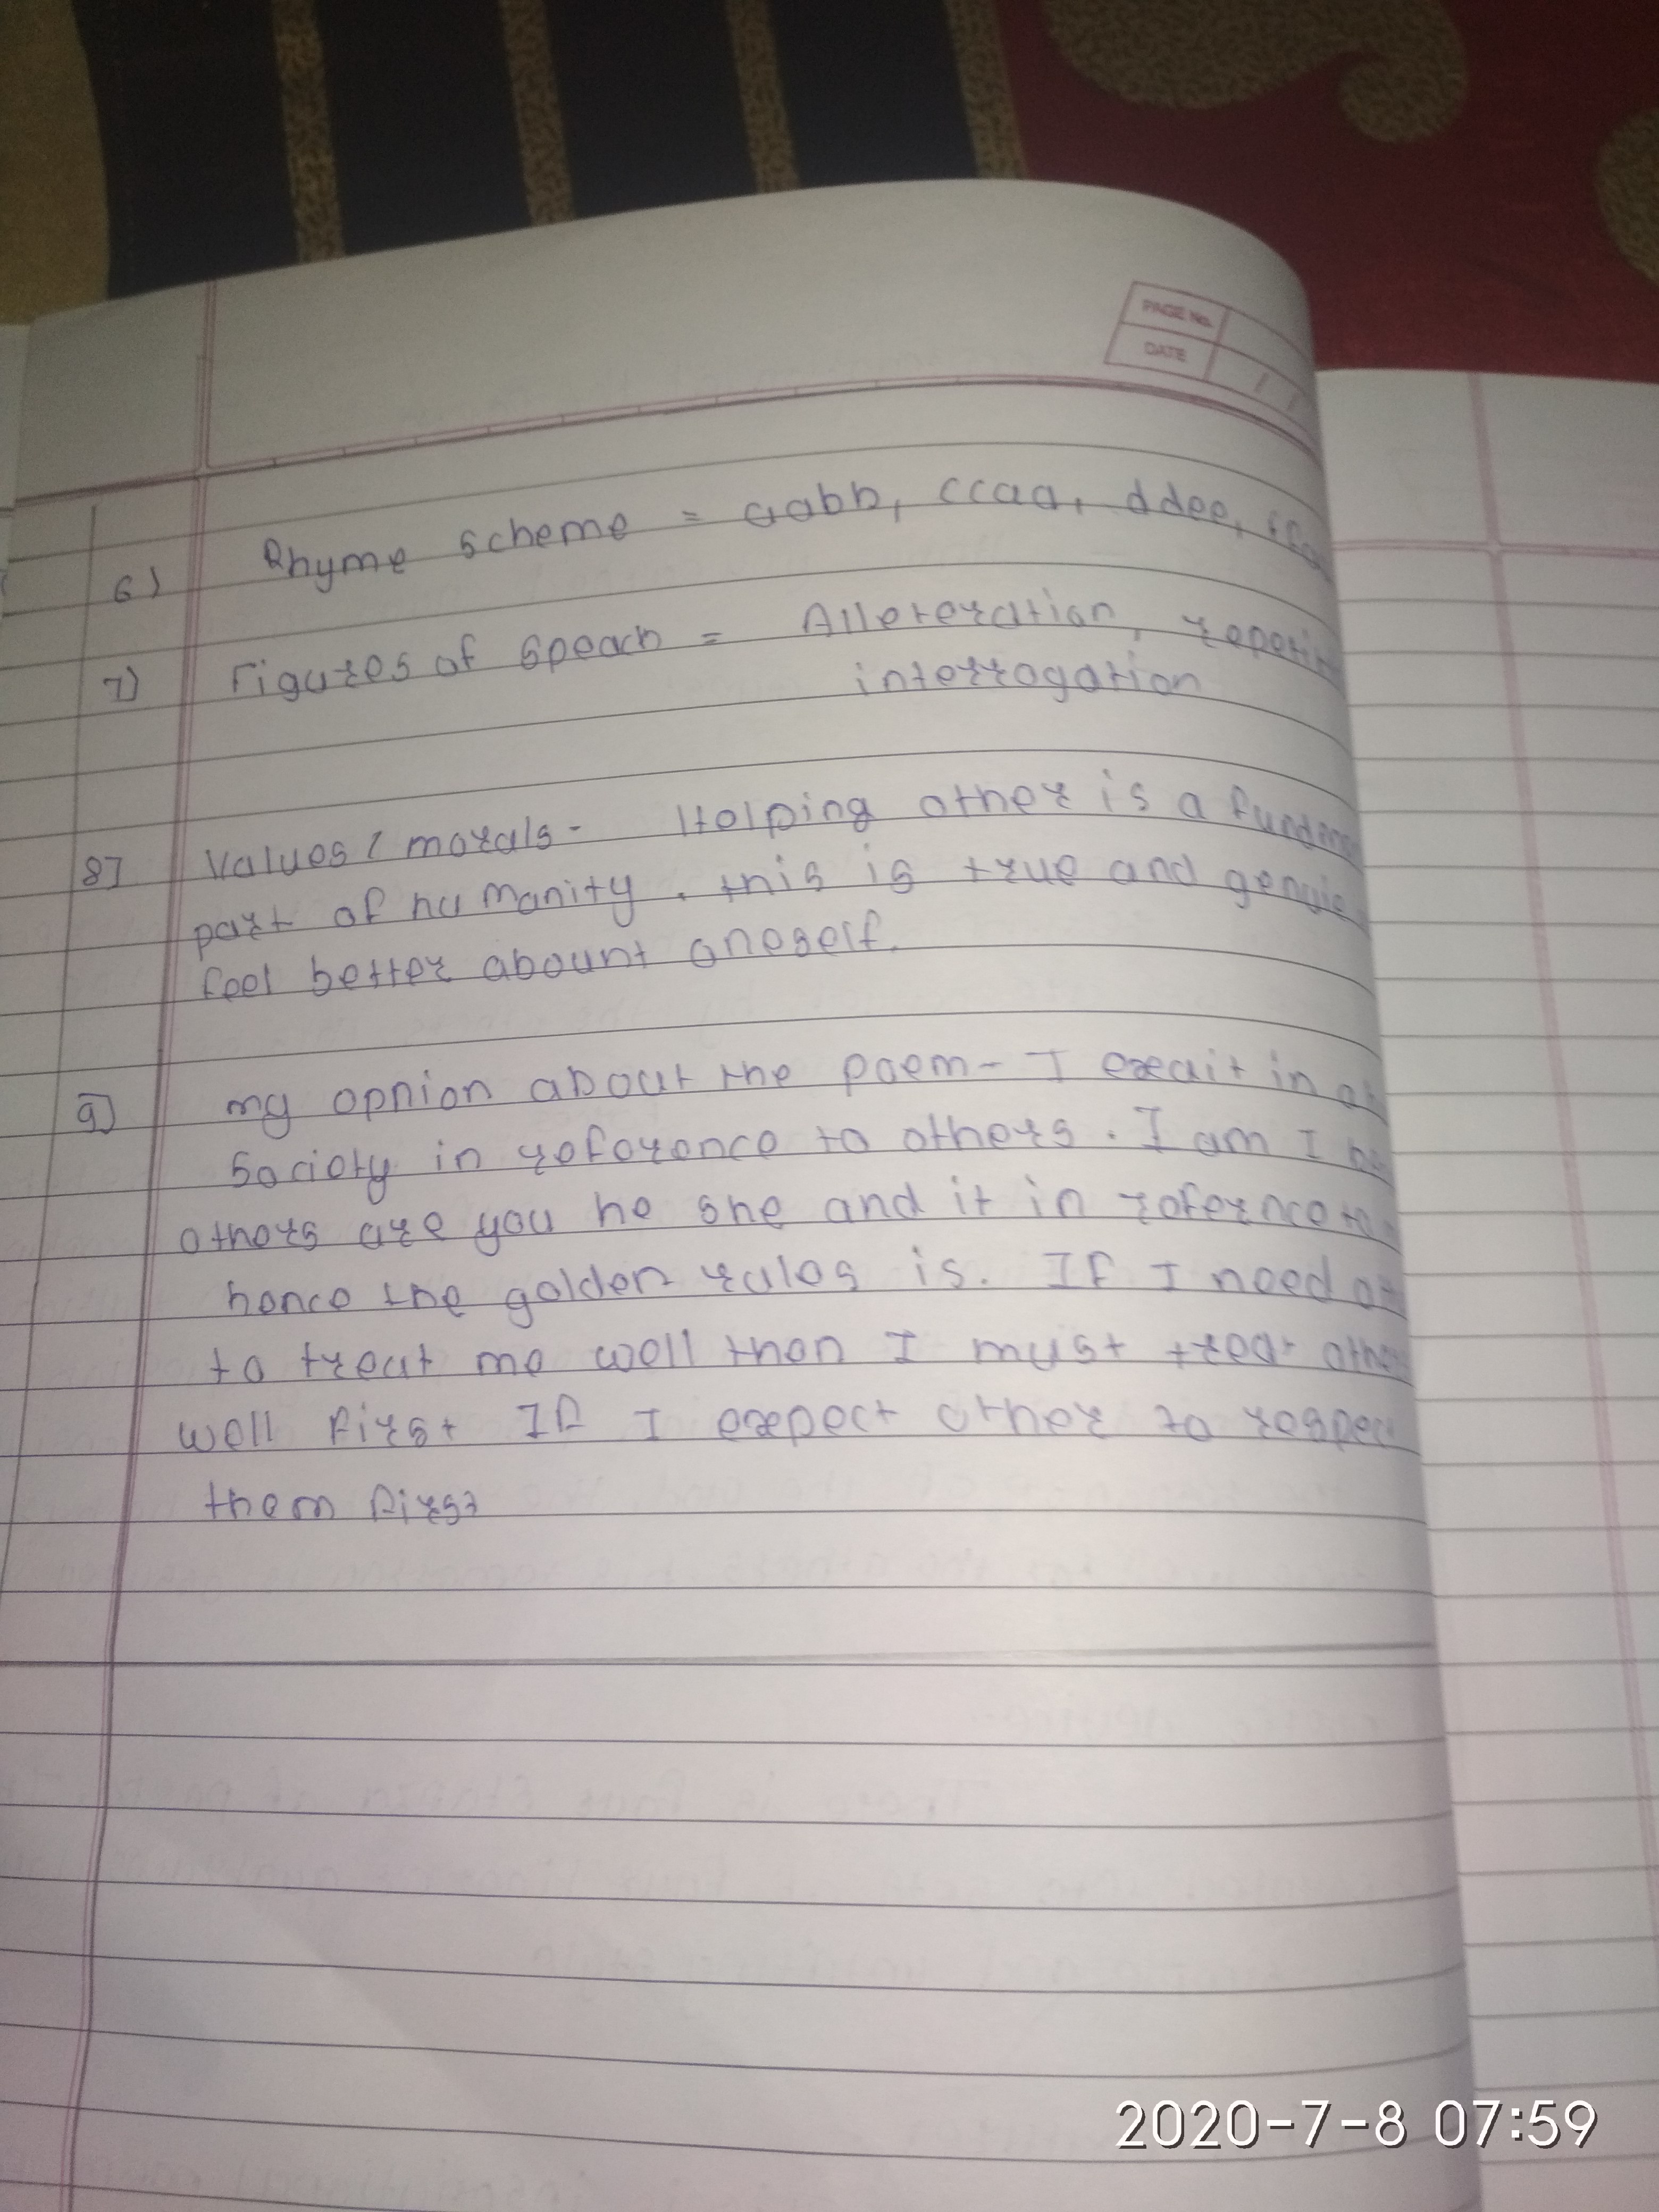 PAGE No.
DATE / /
6) Rhyme scheme = aabb, ccaa, ddee,
7) Figures of speach = Allereration,
interrogation
8] Values / morals - Helping other is a
part of humanity. this is true and
feel better abount oneself.
9] my opnion about the poem - I exeait in
society in reference to others. I am I
others are you he she and it in refernce to
hence the golden rules is. If I need
to treat me well then I must treat
well first If I expect other to respec
them first
2020-7-8 07:59